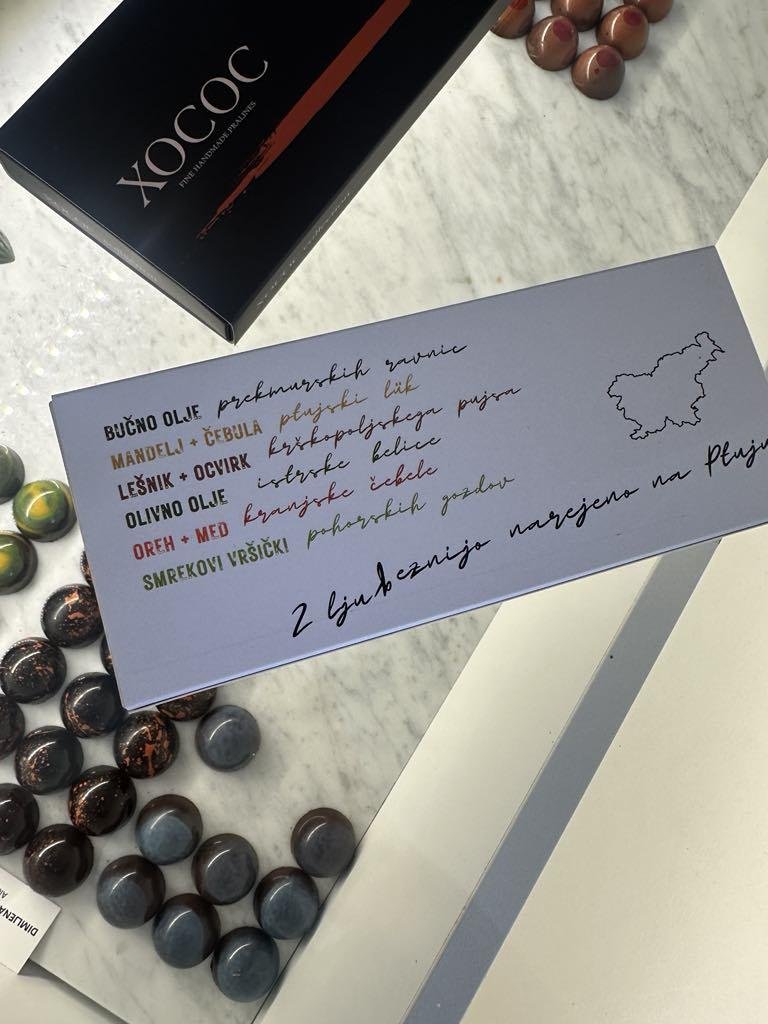 XOCOC
FINE HANDMADE PRALINES
BUČNO OLJE prekmurskih ravnic
MANDELJ + ČEBULA ptujski lük
LEŠNIK + OCVIRK krškopoljskega pujsa
OLIVNO OLJE istrske belice
OREH + MED kranjske čebele
SMREKOVI VRŠIČKI pohorskih gozdov
Z ljubeznijo narejeno na Ptuju
DIMLJENA